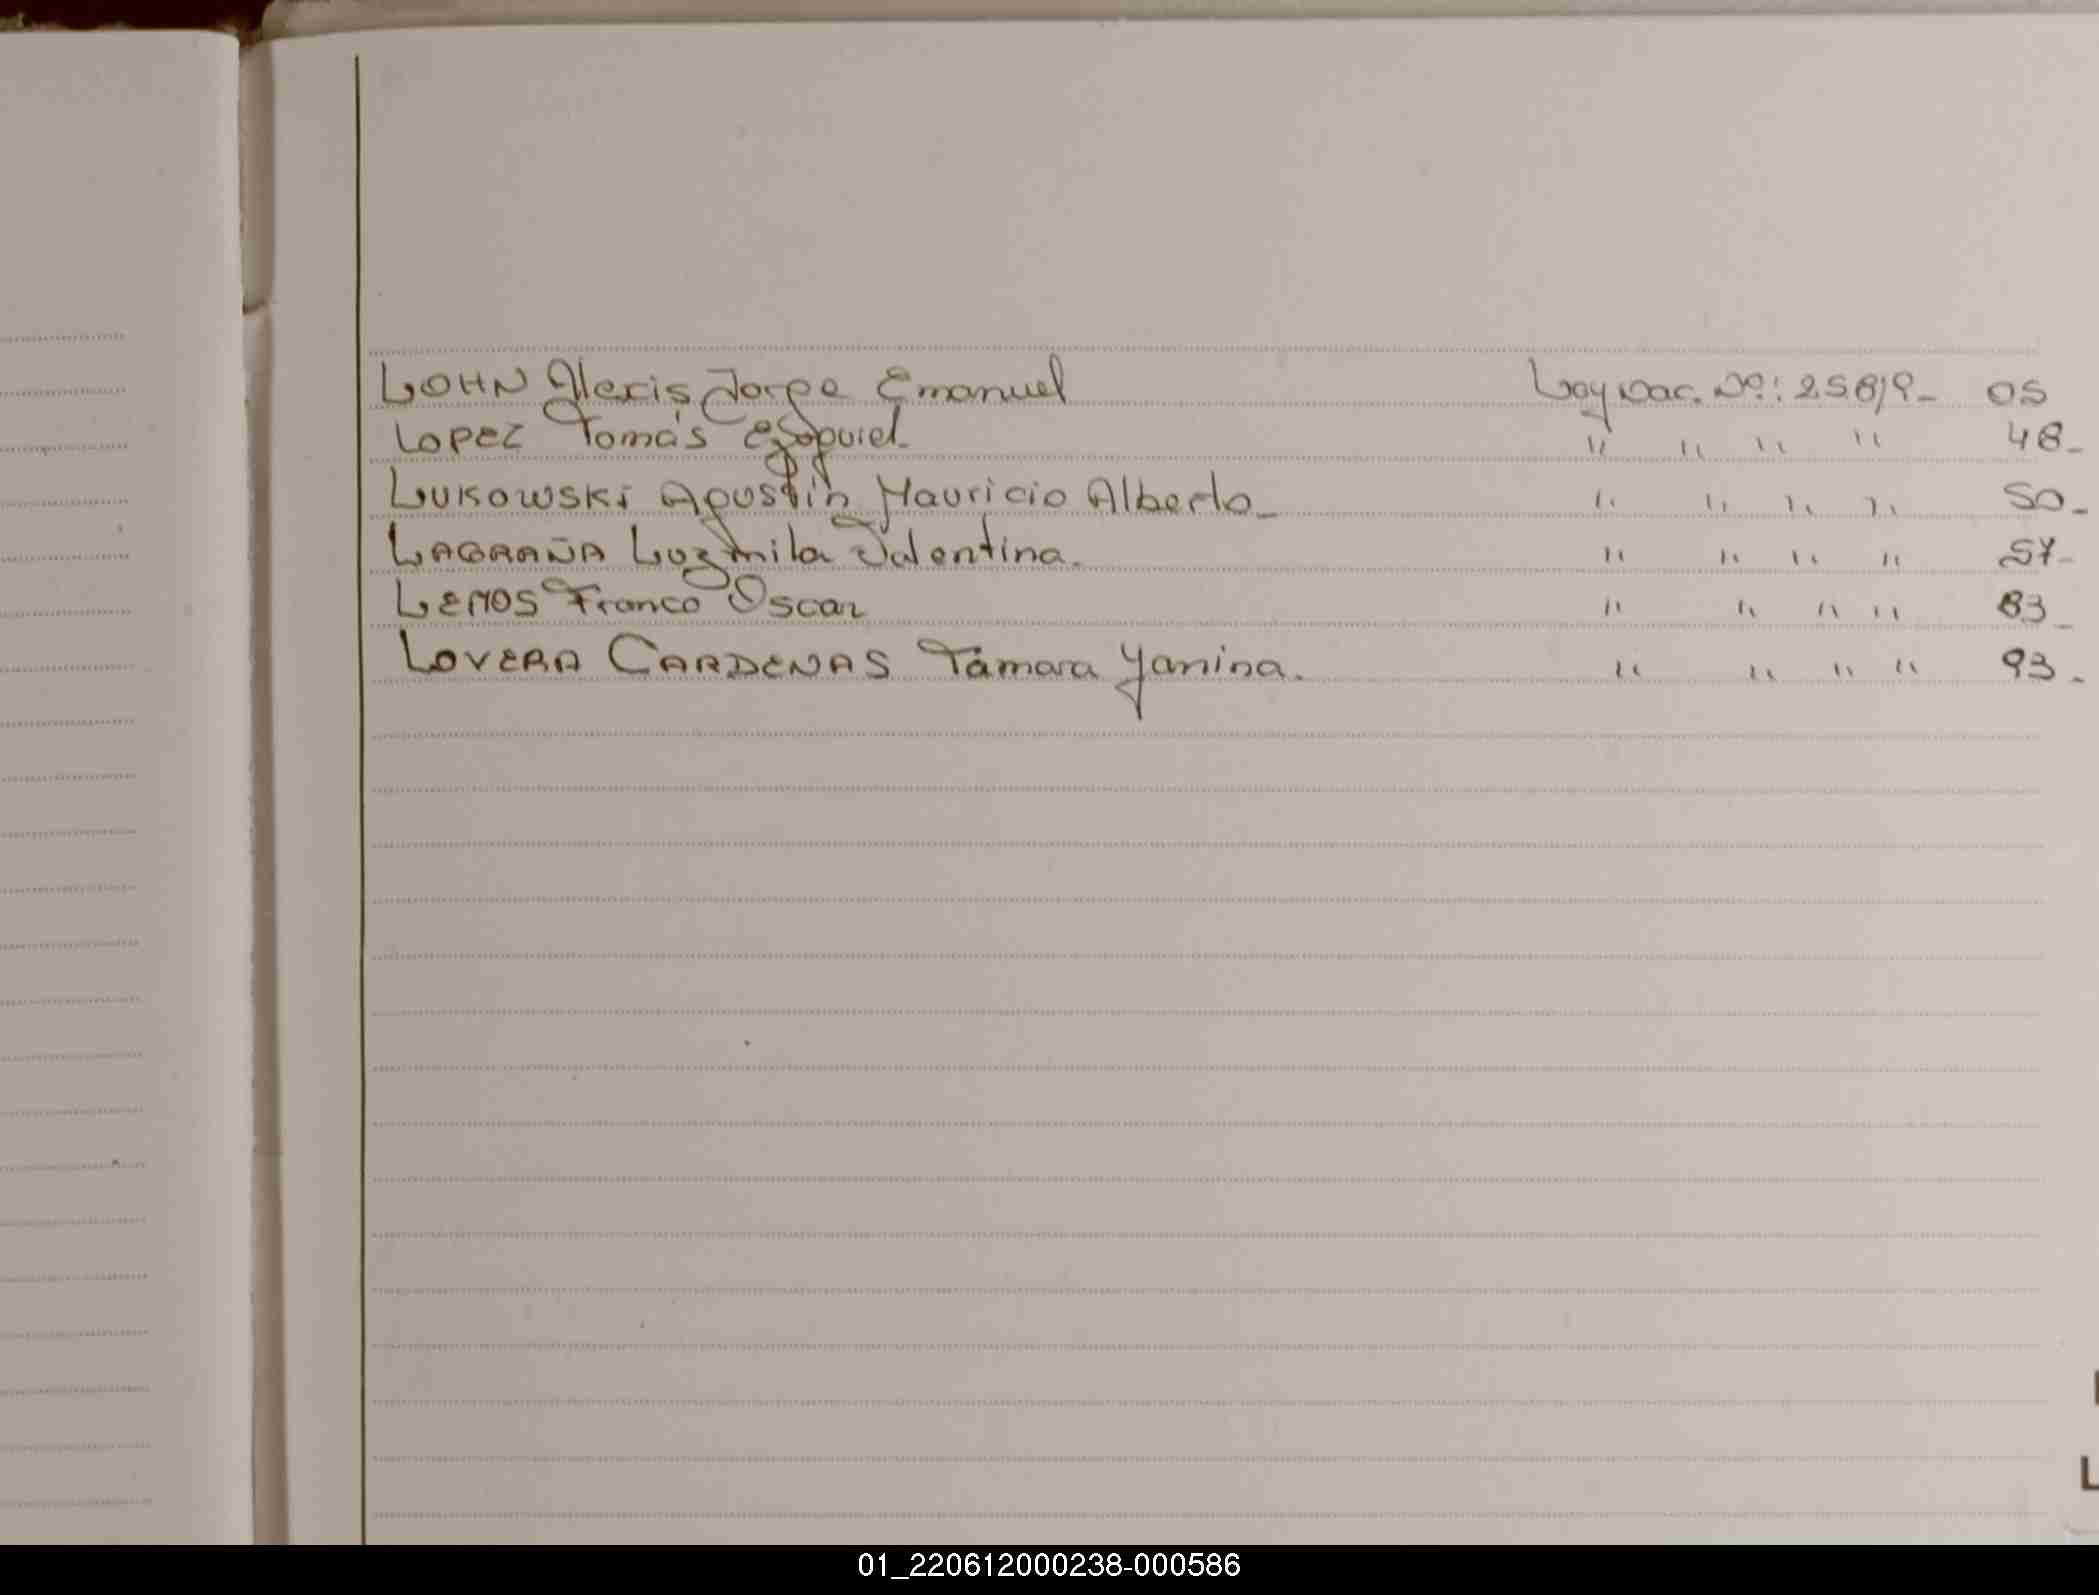 LOHN Alexis Jorge Emanuel Ley Nac. Nº: 25819- 05
LOPEZ Tomás Ezequiel " " " " 48-
LUKOWSKI Agustín Mauricio Alberto- " " " " 50-
LAGRAÑA Luzmila Valentina. " " " " 57-
LEMOS Franco Oscar " " " " 83-
LOVERA CARDENAS Tamara Yanina. " " " " 93-
L
01_220612000238-000586